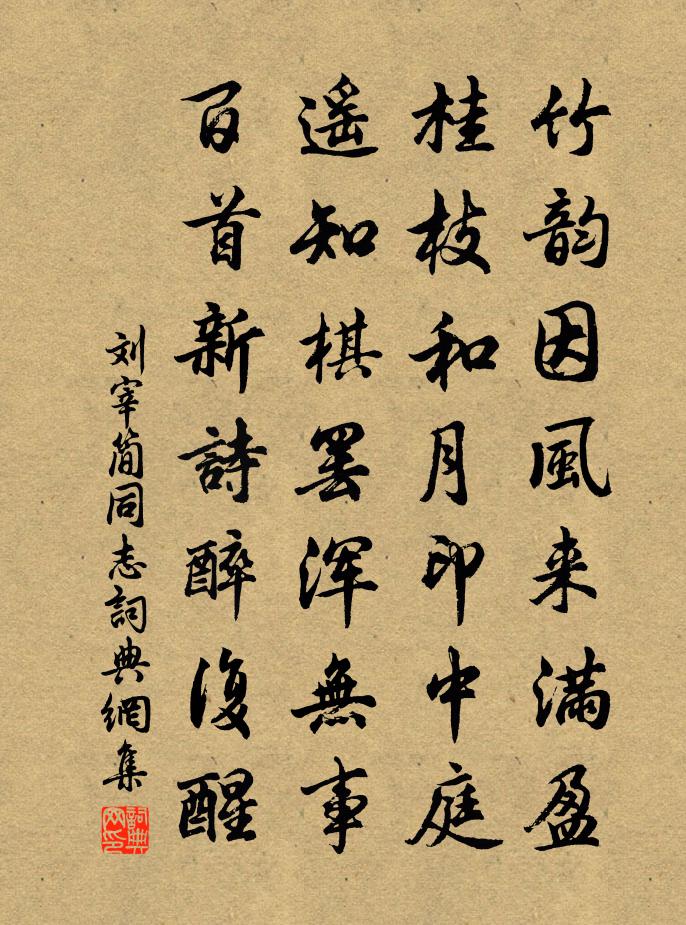 竹韵因風来满盈
桂枝和月印中庭
遥知棋罢浑無事
百首新詩醉復醒
刘宰简同志詞典網集
詞典网印